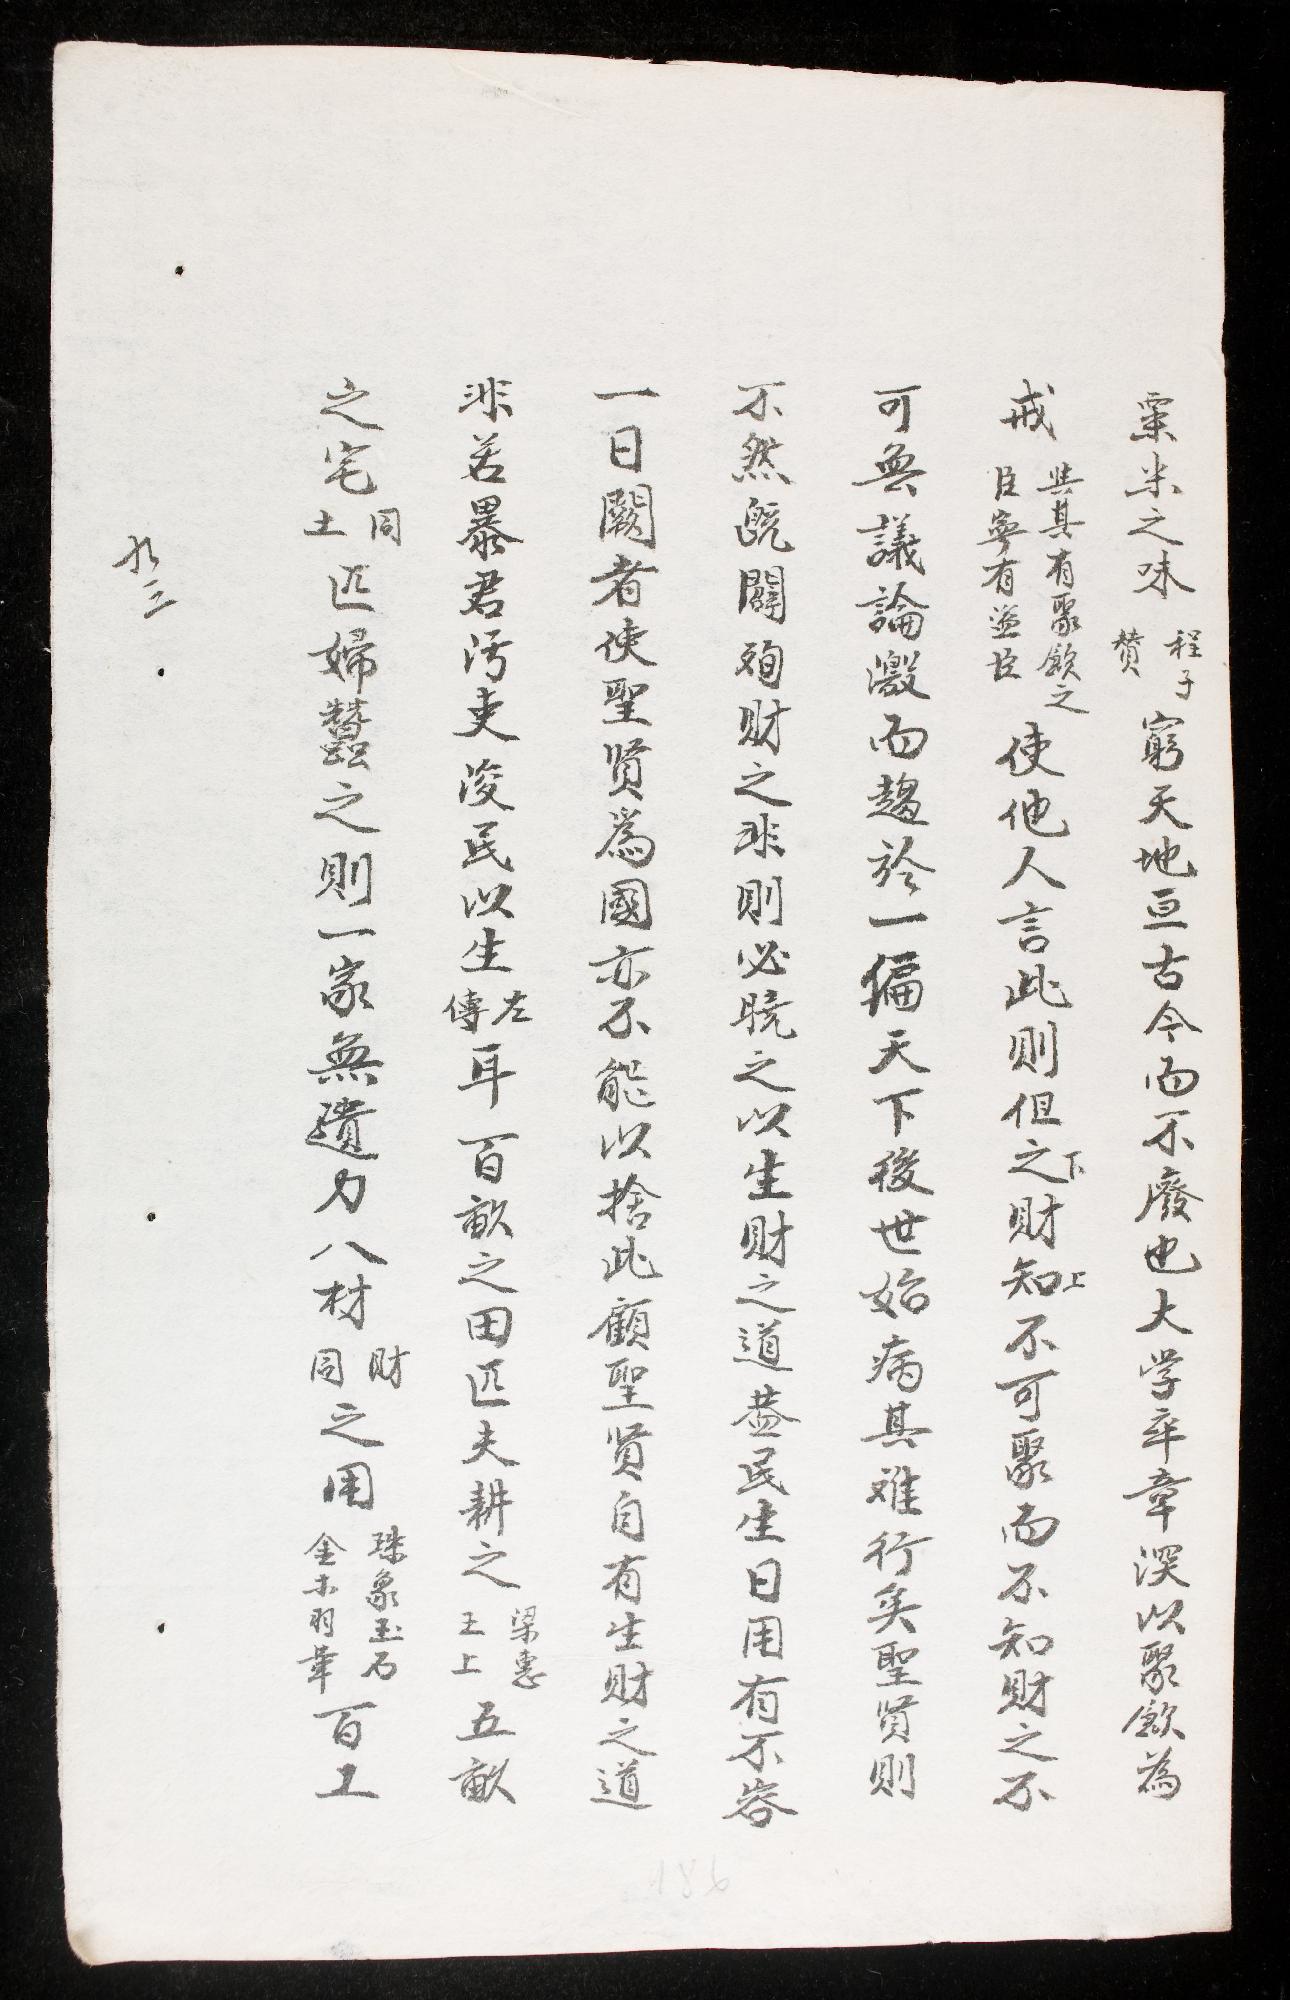 粟米之味程子贊窮天地亘古今而不廢也大学卒章深以聚歛為
戒與其有聚歛之臣寧有盗臣使他人言此則但之下財知上不可聚而不知財之不
可無議論激而趨於一偏天下後世始病其难行矣聖賢則
不然旣闢殉財之非則必曉之以生財之道蓋民生日用有不容
一日闕者使聖賢為國亦不能以捨此顧聖賢自有生財之道
非若暴君汚吏浚民以生左傳耳百畝之田匹夫耕之梁惠王上五畝
之宅同土匹婦蠶之則一家無遺力八材財同之用珠象玉石金木羽革百工
九三
186